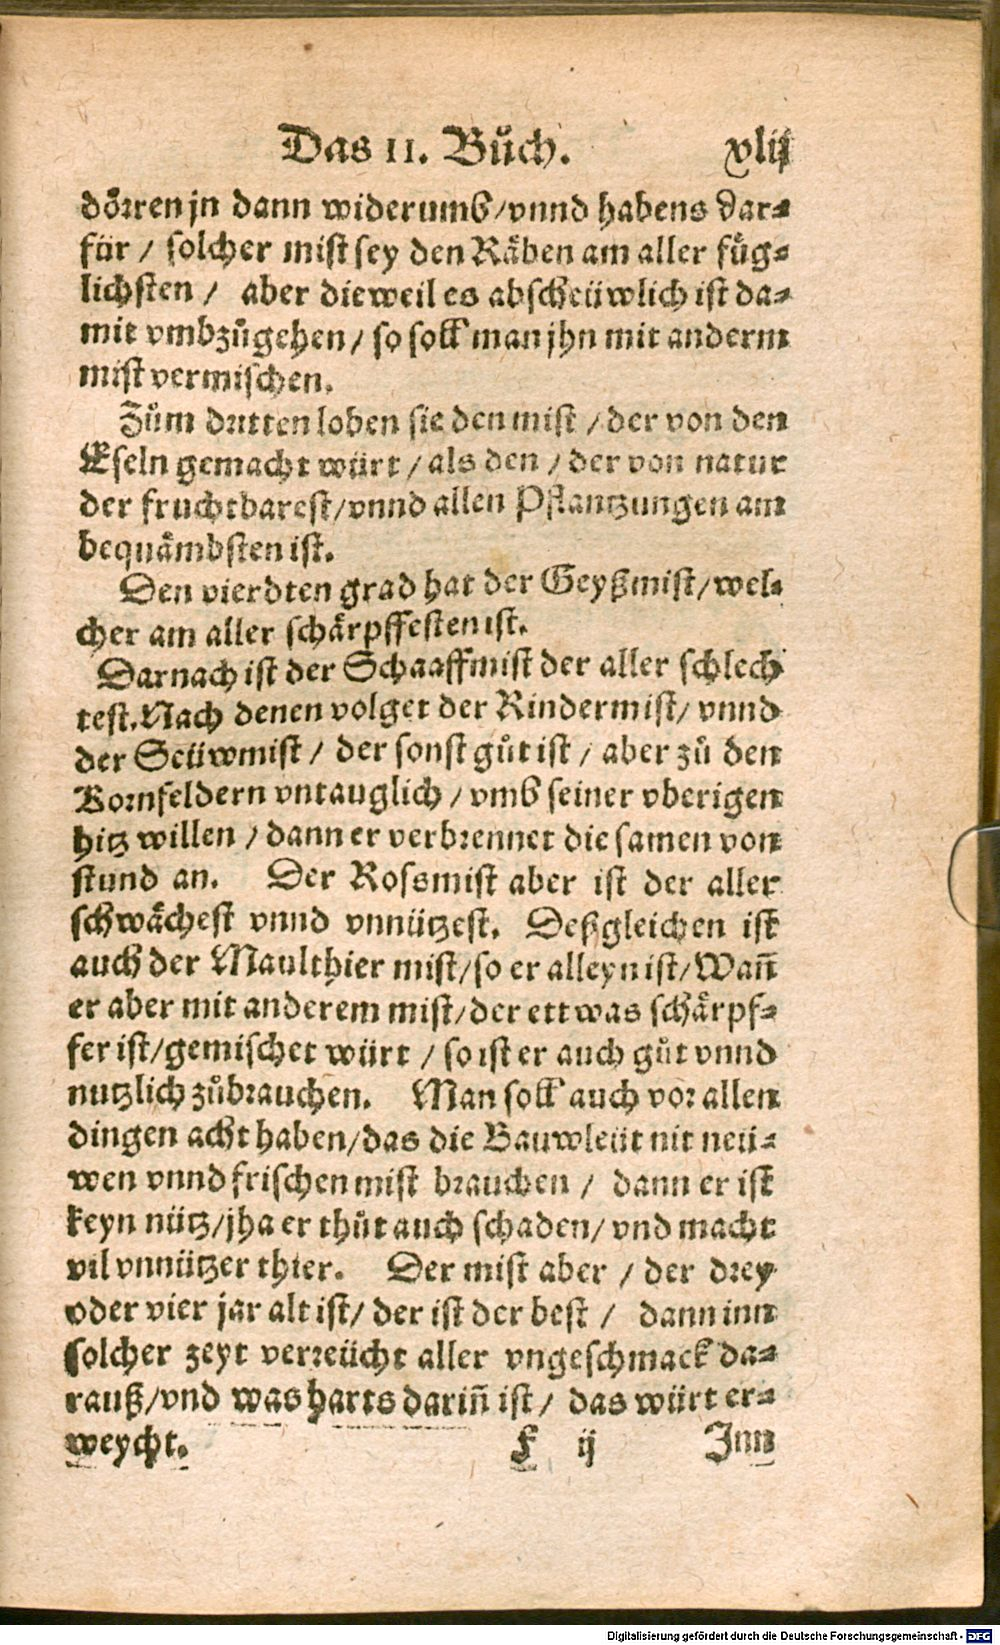 Das II. Bůch. xlij
dörren jn dann widerumb/vnnd habens dar⸗
für / solcher mist sey den Räben am aller füg⸗
lichsten / aber dieweil es abscheüwlich ist da⸗
mit vmbzůgehen / so soll man jhn mit anderm
mist vermischen.
Zům dritten loben sie den mist / der von den
Eseln gemacht würt / als den / der von natur
der fruchtbarest/vnnd allen Pflantzungen am
bequämbsten ist.
Den vierdten grad hat der Geyßmist/wel⸗
cher am aller schärpffesten ist.
Darnach ist der Schaaffmist der aller schlech
test. Nach denen volget der Rindermist/ vnnd
der Seüwmist / der sonst gůt ist / aber zů den
Kornfeldern vntauglich / vmb seiner vberigen
hitz willen / dann er verbrennet die samen von
stund an. Der Rossmist aber ist der aller
schwächest vnnd vnnützest. Deßgleichen ist
auch der Maulthier mist/so er alleyn ist/Wañ
er aber mit anderem mist/der ettwas schärpf⸗
fer ist/gemischet würt / so ist er auch gůt vnnd
nutzlich zůbrauchen. Man soll auch vor allen
dingen acht haben/das die Bauwleüt nit neü⸗
wen vnnd frischen mist brauchen / dann er ist
keyn nütz/jha er thůt auch schaden/ vnd macht
vil vnnützer thier. Der mist aber / der drey
oder vier jar alt ist/ der ist der best / dann inn
solcher zeyt verreücht aller vngeschmack da⸗
rauß/vnd was harts dariñ ist / das würt er⸗
weycht. F ij Inn
Digitalisierung gefördert durch die Deutsche Forschungsgemeinschaft - DFG